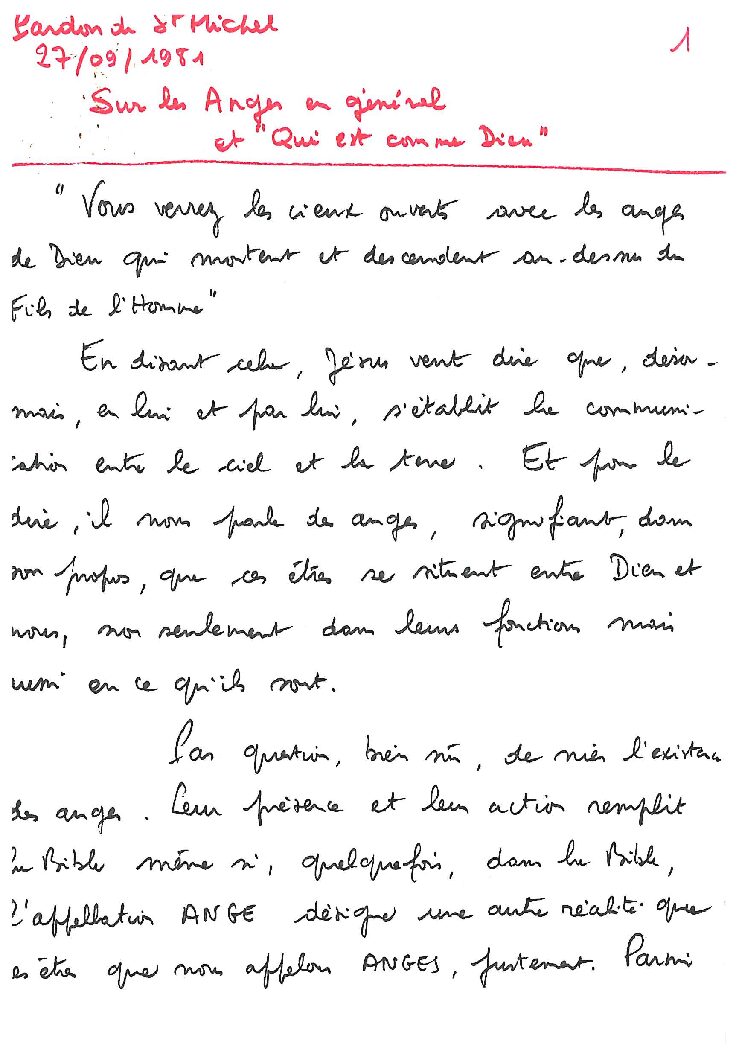 Pardon de St Michel
27/09/1981
1
Sur les Anges en général
et "Qui est comme Dieu"
"Vous verrez les cieux ouverts avec les anges
de Dieu qui montent et descendent au-dessus du
Fils de l'Homme"
En disant cela, Jésus veut dire que, désor-
mais, en lui et par lui, s'établit la communi-
cation entre le ciel et la terre. Et pour le
dire, il nous parle des anges, signifiant, dans
son propos, que ces êtres se situent entre Dieu et
nous, non seulement dans leurs fonctions mais
aussi en ce qu'ils sont.
Pas question, bien sûr, de nier l'existence
des anges. Leur présence et leur action remplit
la Bible même si, quelquefois, dans la Bible,
l'appellation ANGE désigne une autre réalité que
les êtres que nous appelons ANGES, justement. Parmi